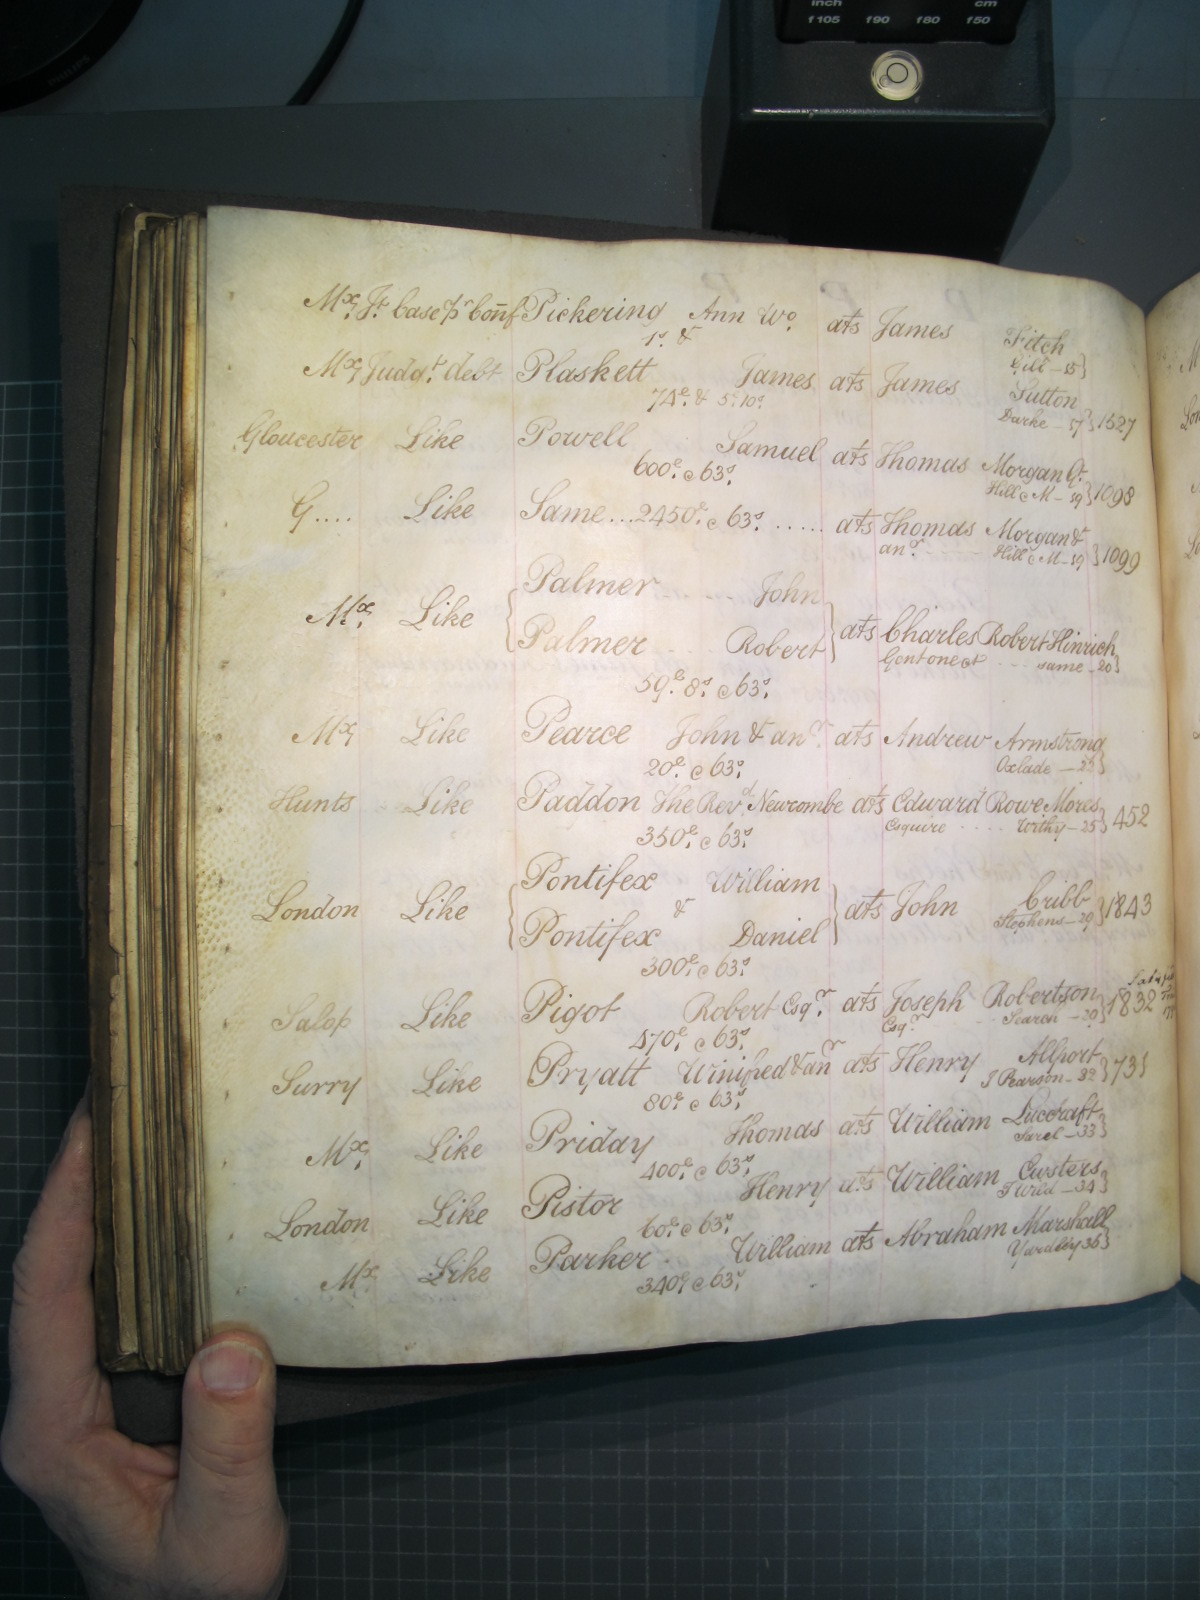 inch cm
f105 f90 f80 f50
PHILIPS
Mx. Jt. case pr conf Pickering Ann Wo. ats James Fitch
1s. & Gill - 15}
Mx Judgt. debt Plaskett James ats James Sutton
74£. & 5s. 10d. Darke - 17} 1527
Gloucester Like Powell Samuel ats Thomas Morgan
600£. c 63s. Hill c M - 19} 1098
G.... Like Same...2450£. c 63s. ...... ats Thomas Morgan &
anr. Hill c M - 19} 1099
Palmer .... John
Mx. Like { } ats Charles Robert Hinrich
Palmer .... Robert Gent one et ... same - 20}
59£. 8s. c 63s.
Mx Like Pearce John & anr. ats Andrew Armstrong
20£. c 63s. Oxlade - 25}
Hunts Like Paddon The Revd. Newcombe ats Edward Rowe Mores
350£. c 63s. Esquire .... Withy - 25} 452
Pontifex William
London Like { & } ats John Cribb
Pontifex Daniel Stephens - 29} 1843
300£. c 63s.
Salop Like Pigot Robert Esqr. ats Joseph Robertson
470£. c 63s. Esqr. .. Search - 20} 1832
Surry Like Pryatt Winifred & anr ats Henry Allport
80£. c 63s. J Pearson - 32} 731
Mx. Like Priday Thomas ats William Luccraft
400£. c 63s. Sarel - 33}
London Like Pistor Henry ats William Custers
60£. c 63s. - 34}
Mx Like Parker William ats Abraham Marshall
340£. c 63s. Yardley 36}